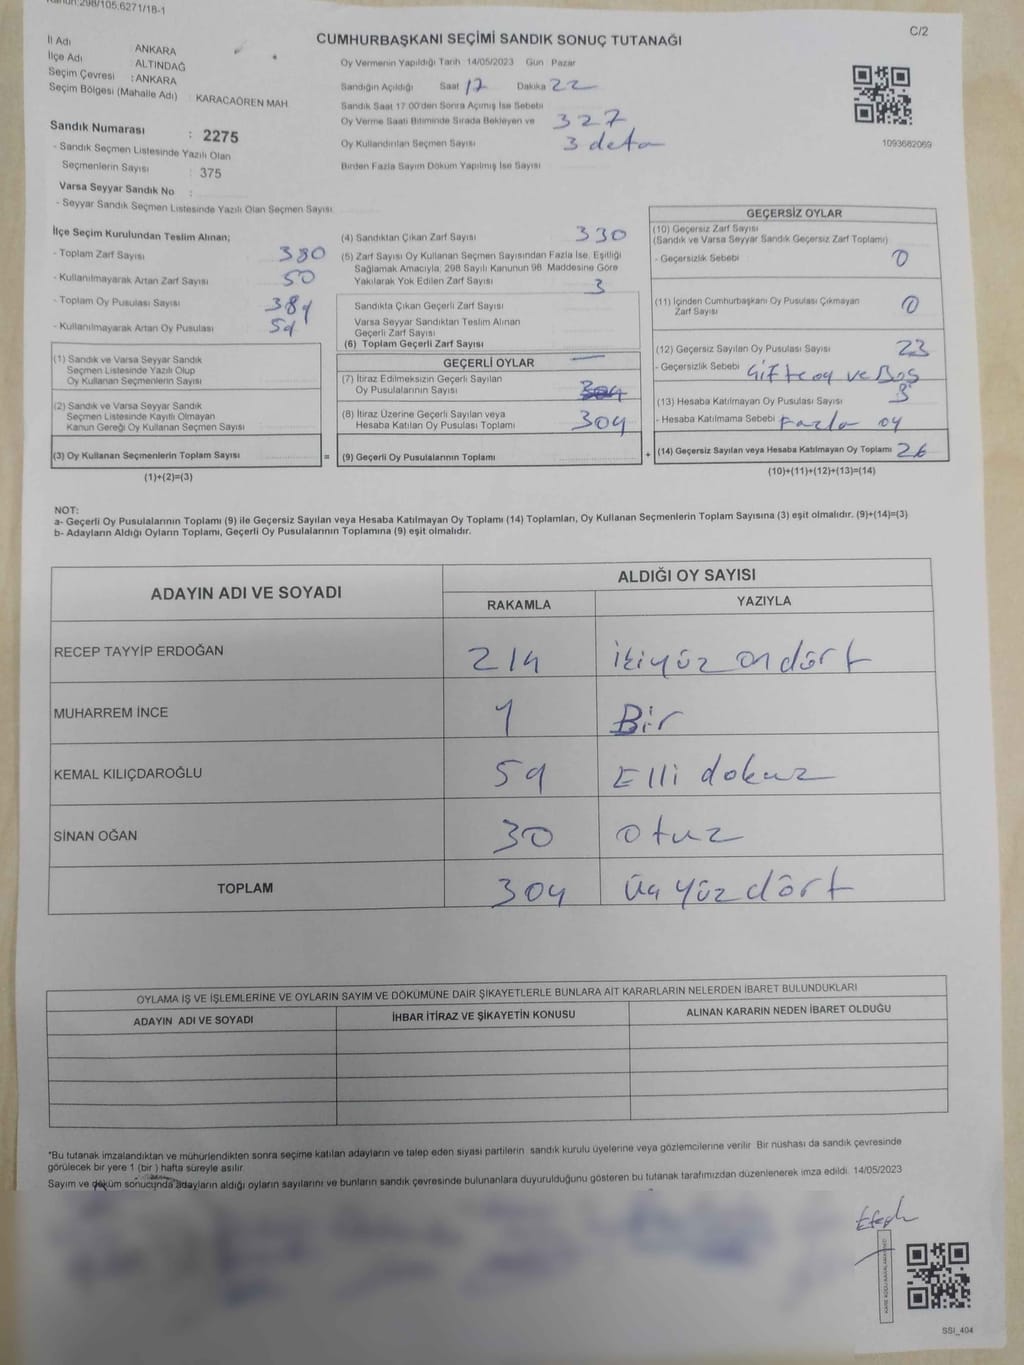 Kanun:298/105.6271/18-1
C/2
CUMHURBAŞKANI SEÇİMİ SANDIK SONUÇ TUTANAĞI
İl Adı : ANKARA
İlçe Adı : ALTINDAĞ
Seçim Çevresi : ANKARA
Seçim Bölgesi (Mahalle Adı) : KARACAÖREN MAH
Sandık Numarası : 2275
- Sandık Seçmen Listesinde Yazılı Olan
Seçmenlerin Sayısı : 375
Varsa Seyyar Sandık No :
- Seyyar Sandık Seçmen Listesinde Yazılı Olan Seçmen Sayısı
Oy Vermenin Yapıldığı Tarih 14/05/2023 Gün Pazar
Sandığın Açıldığı Saat 17 Dakika 22
Sandık Saat 17 00'den Sonra Açımış İse Sebebi
Oy Verme Saati Bitiminde Sırada Bekleyen ve 327
Oy Kullandırılan Seçmen Sayısı 3 deta
Birden Fazla Sayım Döküm Yapılmış İse Sayısı
1093682069
İlçe Seçim Kurulundan Teslim Alınan;
- Toplam Zarf Sayısı 380
- Kullanılmayarak Artan Zarf Sayısı 50
- Toplam Oy Pusulası Sayısı 389
- Kullanılmayarak Artan Oy Pusulası 59
(1) Sandık ve Varsa Seyyar Sandık
Seçmen Listesinde Yazılı Olup
Oy Kullanan Seçmenlerin Sayısı
(2) Sandık ve Varsa Seyyar Sandık
Seçmen Listesinde Kayıtlı Olmayan
Kanun Gereği Oy Kullanan Seçmen Sayısı
(3) Oy Kullanan Seçmenlerin Toplam Sayısı =
(1)+(2)=(3)
(4) Sandıktan Çıkan Zarf Sayısı 330
(5) Zarf Sayısı Oy Kullanan Seçmen Sayısından Fazla İse, Eşitliği
Sağlamak Amacıyla, 298 Sayılı Kanunun 98. Maddesine Göre
Yakılarak Yok Edilen Zarf Sayısı 3
Sandıkta Çıkan Geçerli Zarf Sayısı
Varsa Seyyar Sandıktan Teslim Alınan
Geçerli Zarf Sayısı
(6) Toplam Geçerli Zarf Sayısı
GEÇERLİ OYLAR
(7) İtiraz Edilmeksizin Geçerli Sayılan
Oy Pusulalarının Sayısı 304
(8) İtiraz Üzerine Geçerli Sayılan veya
Hesaba Katılan Oy Pusulası Toplamı 304
(9) Geçerli Oy Pusulalarının Toplamı +
GEÇERSİZ OYLAR
(10) Geçersiz Zarf Sayısı
(Sandık ve Varsa Seyyar Sandık Geçersiz Zarf Toplamı)
- Geçersizlik Sebebi 0
(11) İçinden Cumhurbaşkanı Oy Pusulası Çıkmayan
Zarf Sayısı 0
(12) Geçersiz Sayılan Oy Pusulası Sayısı 23
- Geçersizlik Sebebi Çift oy ve Boş
(13) Hesaba Katılmayan Oy Pusulası Sayısı 3
- Hesaba Katılmama Sebebi Fazla oy
(14) Geçersiz Sayılan veya Hesaba Katılmayan Oy Toplamı 26
(10)+(11)+(12)+(13)=(14)
NOT:
a- Geçerli Oy Pusulalarının Toplamı (9) ile Geçersiz Sayılan veya Hesaba Katılmayan Oy Toplamı (14) Toplamları, Oy Kullanan Seçmenlerin Toplam Sayısına (3) eşit olmalıdır. (9)+(14)=(3)
b- Adayların Aldığı Oyların Toplamı, Geçerli Oy Pusulalarının Toplamına (9) eşit olmalıdır.
ADAYIN ADI VE SOYADI
ALDIĞI OY SAYISI
RAKAMLA YAZIYLA
RECEP TAYYİP ERDOĞAN 214 ikiyüz on dört
MUHARREM İNCE 1 Bir
KEMAL KILIÇDAROĞLU 59 Elli dokuz
SİNAN OĞAN 30 otuz
TOPLAM 304 üç yüz dört
OYLAMA İŞ VE İŞLEMLERİNE VE OYLARIN SAYIM VE DÖKÜMÜNE DAİR ŞİKAYETLERLE BUNLARA AİT KARARLARIN NELERDEN İBARET BULUNDUKLARI
ADAYIN ADI VE SOYADI İHBAR İTİRAZ VE ŞİKAYETİN KONUSU ALINAN KARARIN NEDEN İBARET OLDUĞU
*Bu tutanak imzalandıktan ve mühürlendikten sonra seçime katılan adayların ve talep eden siyasi partilerin sandık kurulu üyelerine veya gözlemcilerine verilir. Bir nüshası da sandık çevresinde
görülecek bir yere 1 (bir ) hafta süreyle asılır.
Sayım ve döküm sonucunda adayların aldığı oyların sayılarını ve bunların sandık çevresinde bulunanlara duyurulduğunu gösteren bu tutanak tarafımızdan düzenlenerek imza edildi. 14/05/2023
SSI_404